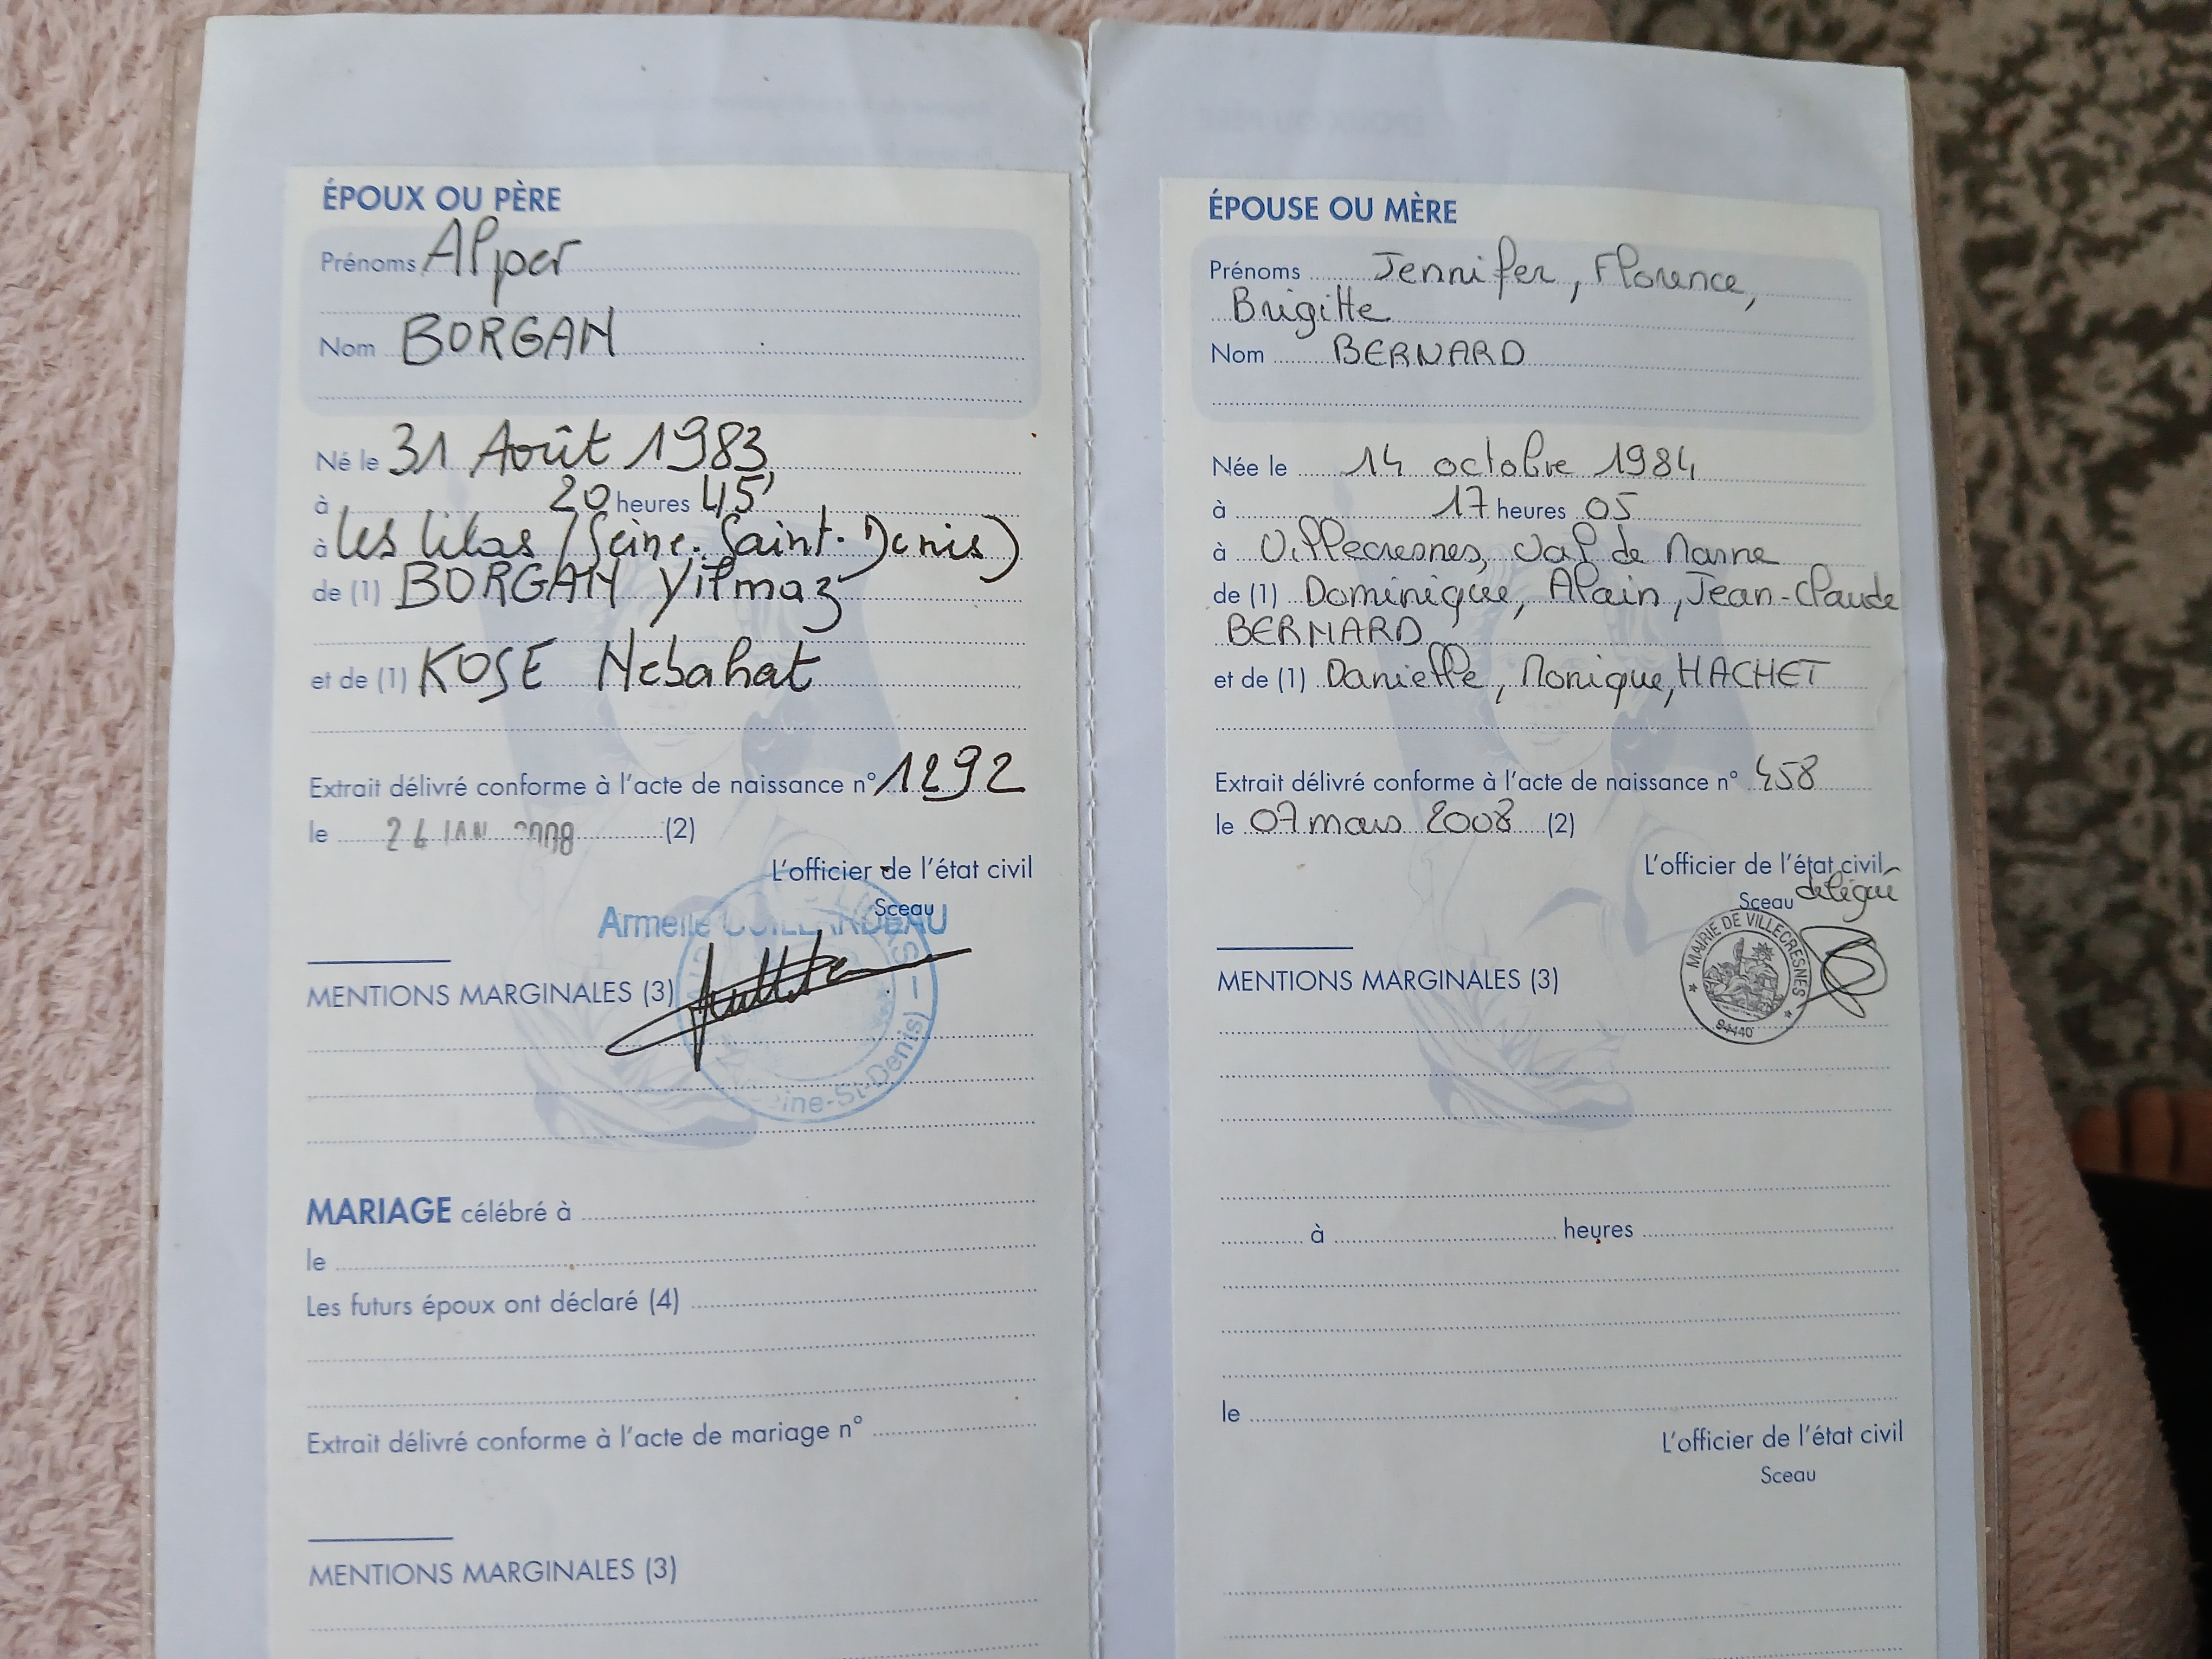 ÉPOUX OU PÈRE
Prénoms Alper
Nom BORGAN
Né le 31 Août 1983
à 20 heures 45'
à les lilas (Seine-Saint-Denis)
de (1) BORGAN Yilmaz
et de (1) KOSE Nebahat
Extrait délivré conforme à l'acte de naissance n° 1292
le JAN 2008 (2)
L'officier de l'état civil
Sceau
Armelle
ine-St-Denis)
MENTIONS MARGINALES (3)
MARIAGE célébré à
le
Les futurs époux ont déclaré (4)
Extrait délivré conforme à l'acte de mariage n°
MENTIONS MARGINALES (3)
ÉPOUSE OU MÈRE
Prénoms Jennifer, Florence,
Brigitte
Nom BERNARD
Née le 14 octobre 1984
à 17 heures 05
à Villecresnes, Val de Marne
de (1) Dominique, Alain, Jean-Claude
BERNARD
et de (1) Danielle, Monique, HACHET
Extrait délivré conforme à l'acte de naissance n° 458
le 07 mars 2008 (2)
L'officier de l'état civil
délégué
Sceau
MAIRIE DE VILLECRESNES
94440
MENTIONS MARGINALES (3)
à heures
le
L'officier de l'état civil
Sceau